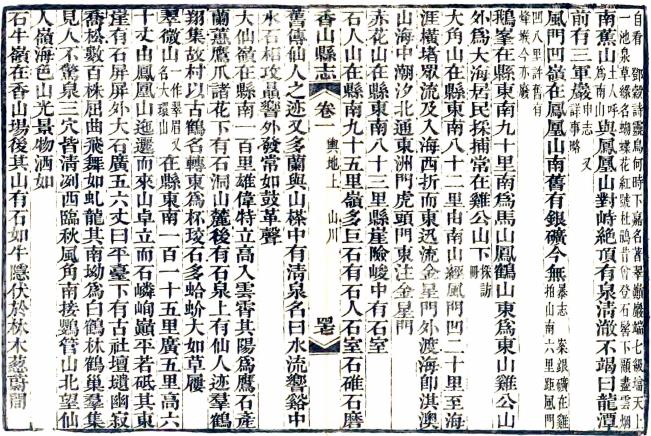 自看　鄧䥥詩靈鳥何時下嘉名著翠巓巖端七級墖天上
一池泉草緣名蝴蝶花紅號杜鵑昔曾登石罄下顧盡雲烟
南蕉山土人呼爲南山與鳳凰山對峙絶頂有泉清澈不竭曰龍潭
前有三軍巖申志又詳事略
風門凹嶺在鳳凰山南舊有銀礦今無暴志　案銀礦在雞拍山南六里距風門
凹八里許舊有蜂城今亦廢
鵝峯在縣東南九十里南爲馬山鳳鶴山東爲東山雞公山
外爲大海居民採捕常在雞公山下採訪冊
大角山在縣東南八十二里由南山經風門凹二十里至海
涯橫墖眾流及入海西折而東迅流金星門外渡海卽淇澳
山海中潮汐北通東洲門虎頭門東注金星門
赤花山在縣東南八十三里縣崖險峻中有石室
石人山在縣東南九十五里嶺多巨石有石人石室石碓石磨
香山縣志　卷一　輿地上　山川
舊傳仙人之迹又多蘭與山榤中有清泉名曰水流響谿中
水石相攻晶響外發常如鼓革聲
大仙嶺在縣南一百里雄偉特立高入雲霄其陽爲鷹石產
蘭蕙鷹爪諸花下有石洞山麓後有石泉上有仙人迹羣鶴
翔集故村以古鶴名轉東爲杯珓石多蛤蚧大如草屨
翠微山一作翠眉又名大環山在縣東南一百一十五里廣五里高六
十丈由鳳凰山迤邐而來山卓立而石嶙峋巓平若砥其東
崖有石屏屏外大石廣五六丈曰平臺下有古社壇壝幽寂
喬松數百株屈曲飛舞如虬龍其南坳爲白鶴林鶴巢羣集
見人不驚泉三穴皆清冽西臨秋風角南接鸚管山北望仙
人嶺海色山光景物洒如
石牛嶺在香山場後其山有石如牛隱伏於林木葱蒨間